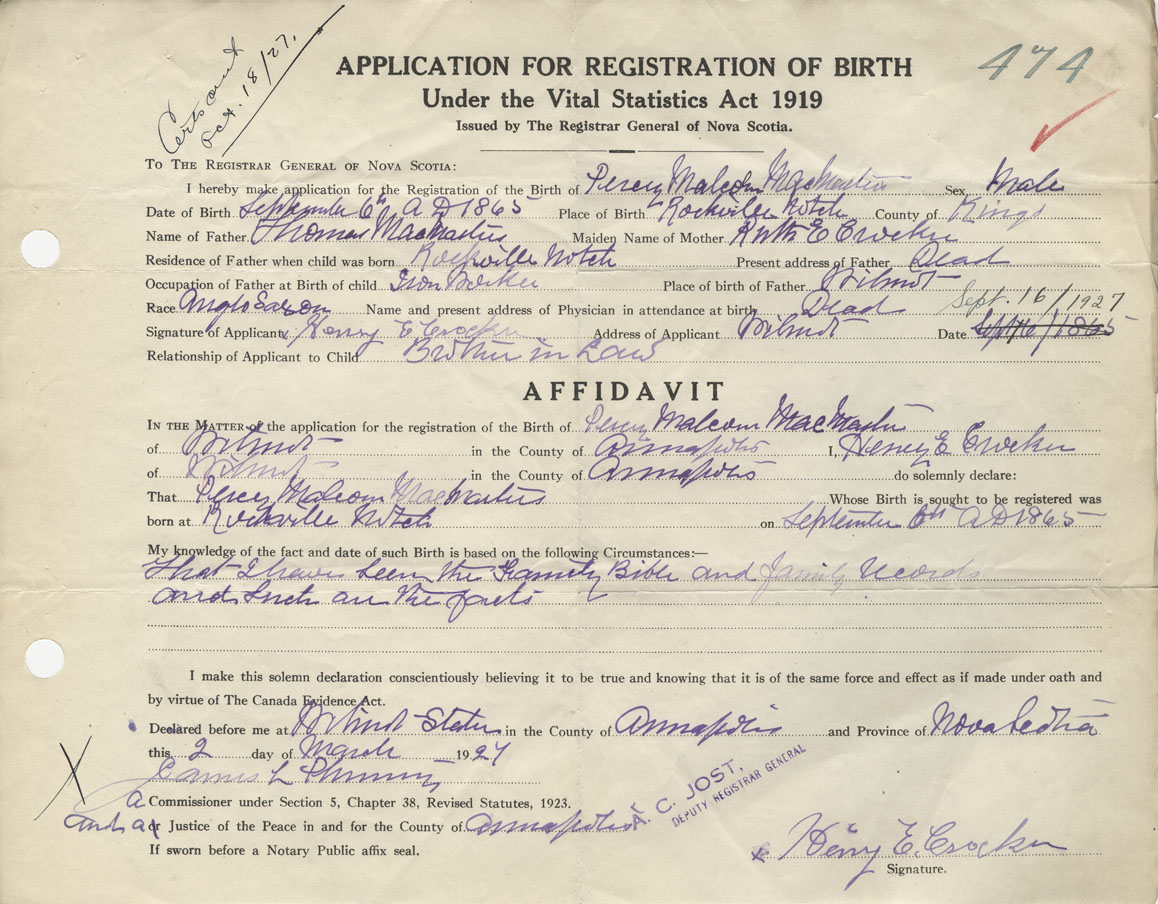 Certs out
Oct. 18/27.
474
APPLICATION FOR REGISTRATION OF BIRTH
Under the Vital Statistics Act 1919
Issued by The Registrar General of Nova Scotia.
TO THE REGISTRAR GENERAL OF NOVA SCOTIA:
I hereby make application for the Registration of the Birth of Percy Malcom MacMaster Sex Male
Date of Birth September 6th AD 1865 Place of Birth Rockville Notch County of Kings
Name of Father Thomas MacMaster Maiden Name of Mother Ruth E Crocker
Residence of Father when child was born Rockville Notch Present address of Father Dead
Occupation of Father at Birth of child Iron Worker Place of birth of Father Wilmot
Race Anglo Saxon Name and present address of Physician in attendance at birth Dead Sept. 16/1927
Signature of Applicant Henry E Crocker Address of Applicant Wilmot Date Sept 16/1865
Relationship of Applicant to Child Brother in Law
AFFIDAVIT
IN THE MATTER of the application for the registration of the Birth of Percy Malcom MacMaster
of Wilmot in the County of Annapolis I, Henry E Crocker
of Wilmot in the County of Annapolis do solemnly declare:
That Percy Malcom MacMaster Whose Birth is sought to be registered was
born at Rockville Notch on September 6th AD 1865
My knowledge of the fact and date of such Birth is based on the following Circumstances:—
that I have seen the Family Bible and family Records
and such are the facts
I make this solemn declaration conscientiously believing it to be true and knowing that it is of the same force and effect as if made under oath and
by virtue of The Canada Evidence Act.
Declared before me at Wilmot Station in the County of Annapolis and Province of Nova Scotia
this 2 day of March 1927
L
a Commissioner under Section 5, Chapter 38, Revised Statutes, 1923.
and a or Justice of the Peace in and for the County of Annapolis
A. C. JOST,
DEPUTY REGISTRAR GENERAL
If sworn before a Notary Public affix seal.
x Henry E. Crocker
Signature.